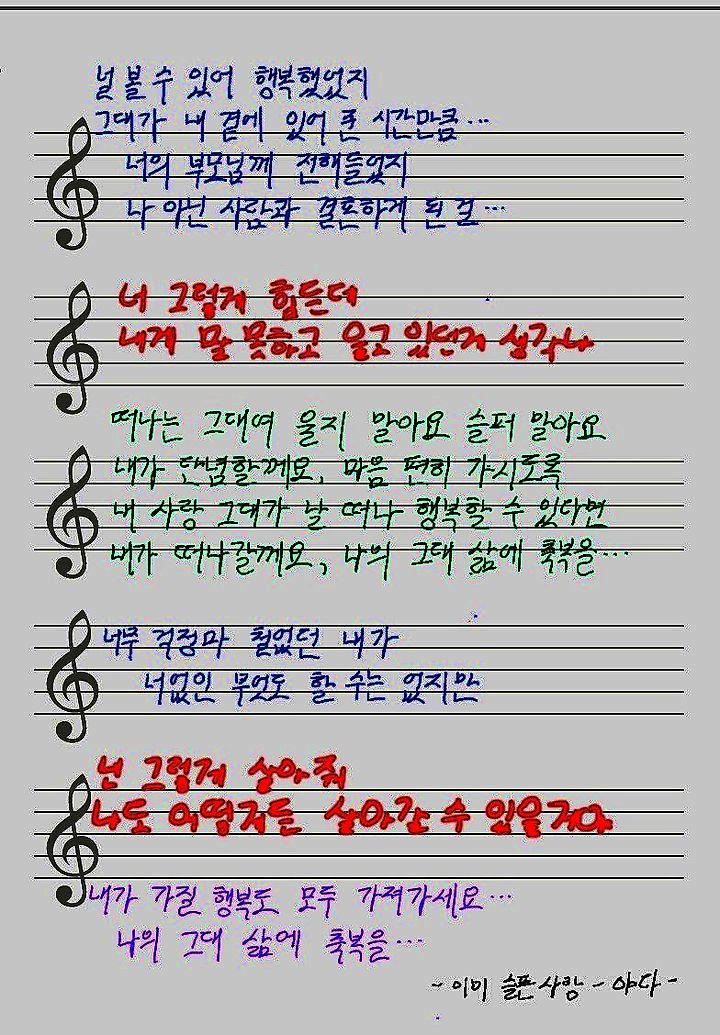 널 볼 수 있어 행복했었지
그대가 내 곁에 있어 준 시간만큼...
너의 부모님께 전해들었지
나 아닌 사람과 결혼하게 된 걸...
너 그렇게 힘든데
내게 말 못하고 울고 있던게 생각나
떠나는 그대여 울지 말아요 슬퍼 말아요
내가 단념할께요, 마음 편히 가시도록
내 사랑 그대가 날 떠나 행복할 수 있다면
내가 떠나갈께요, 나의 그대 삶에 축복을...
너무 걱정마 철없던 내가
너없인 무엇도 할 수는 없지만
넌 그렇게 살아줘
나도 어떻게든 살아갈 수 있을거야
내가 가질 행복도 모두 가져가세요...
나의 그대 삶에 축복을...
- 이미 슬픈 사랑 - 야다 -